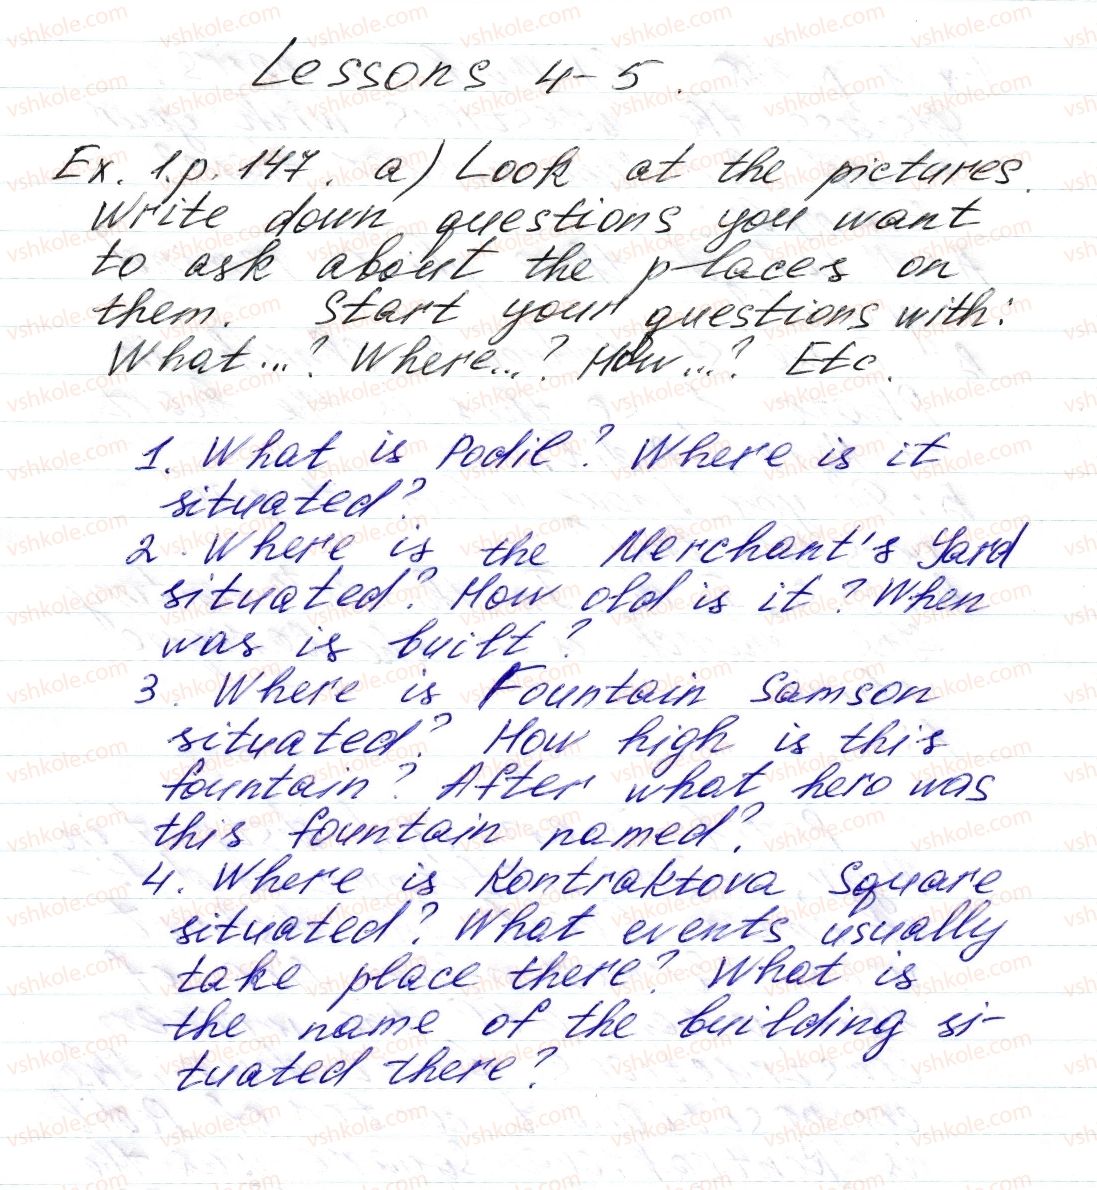 Lessons 4-5.
Ex. 1.p. 147. a) Look at the pictures.
Write down questions you want
to ask about the places on
them. Start your questions with:
What...? Where...? How...? Etc.
1. What is Podil? Where is it
situated?
2. Where is the Merchant's Yard
situated? How old is it? When
was is built?
3. Where is Fountain Samson
situated? How high is this
fountain? After what hero was
this fountain named?
4. Where is Kontraktova Square
situated? What events usually
take place there? What is
the name of the building si-
tuated there?
vshkole.com